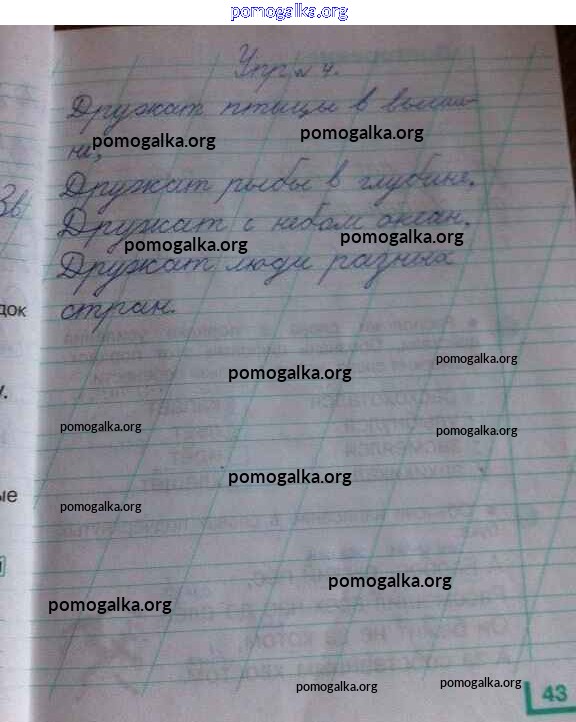 pomogalka.org
Упр. № 4.
Дружат птицы в выши-
не,
pomogalka.org
pomogalka.org
Дружат рыбы в глубине.
Зв
Дружат с небом океан.
pomogalka.org
pomogalka.org
Дружат люди разных
стран.
док
pomogalka.org
pomogalka.org
у.
pomogalka.org
pomogalka.org
pomogalka.org
ые
pomogalka.org
pomogalka.org
pomogalka.org
pomogalka.org
pomogalka.org
43